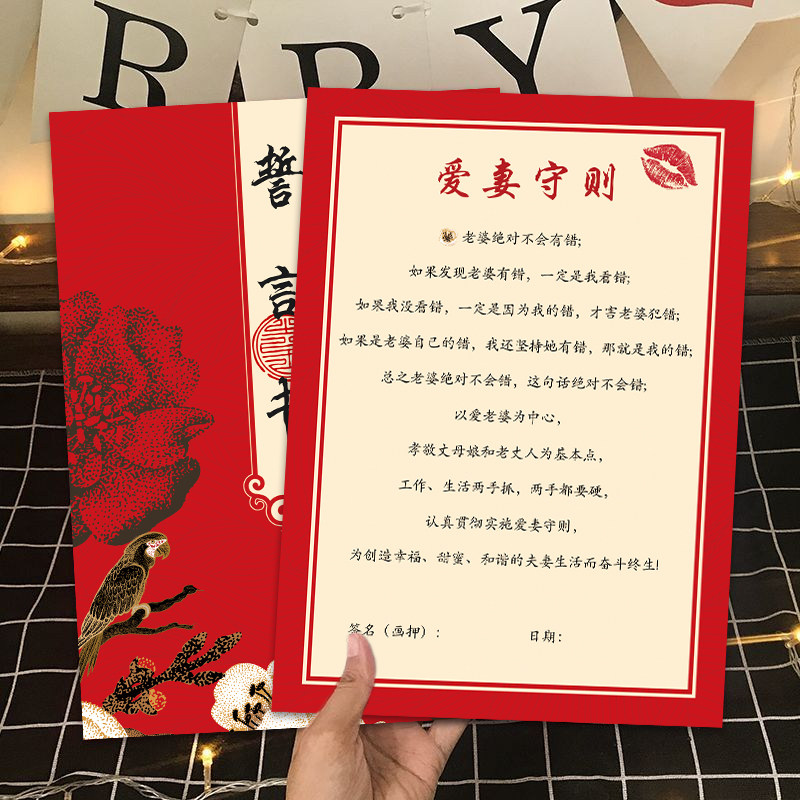 R
B
Y
誓
言
书
爱妻守则
老婆绝对不会有错;
如果发现老婆有错，一定是我看错;
如果我没看错，一定是因为我的错，才害老婆犯错;
如果是老婆自己的错，我还坚持她有错，那就是我的错;
总之老婆绝对不会错，这句话绝对不会错;
以爱老婆为中心，
孝敬丈母娘和老丈人为基本点，
工作、生活两手抓，两手都要硬，
认真贯彻实施爱妻守则，
为创造幸福、甜蜜、和谐的夫妻生活而奋斗终生!
签名（画押）:
日期: